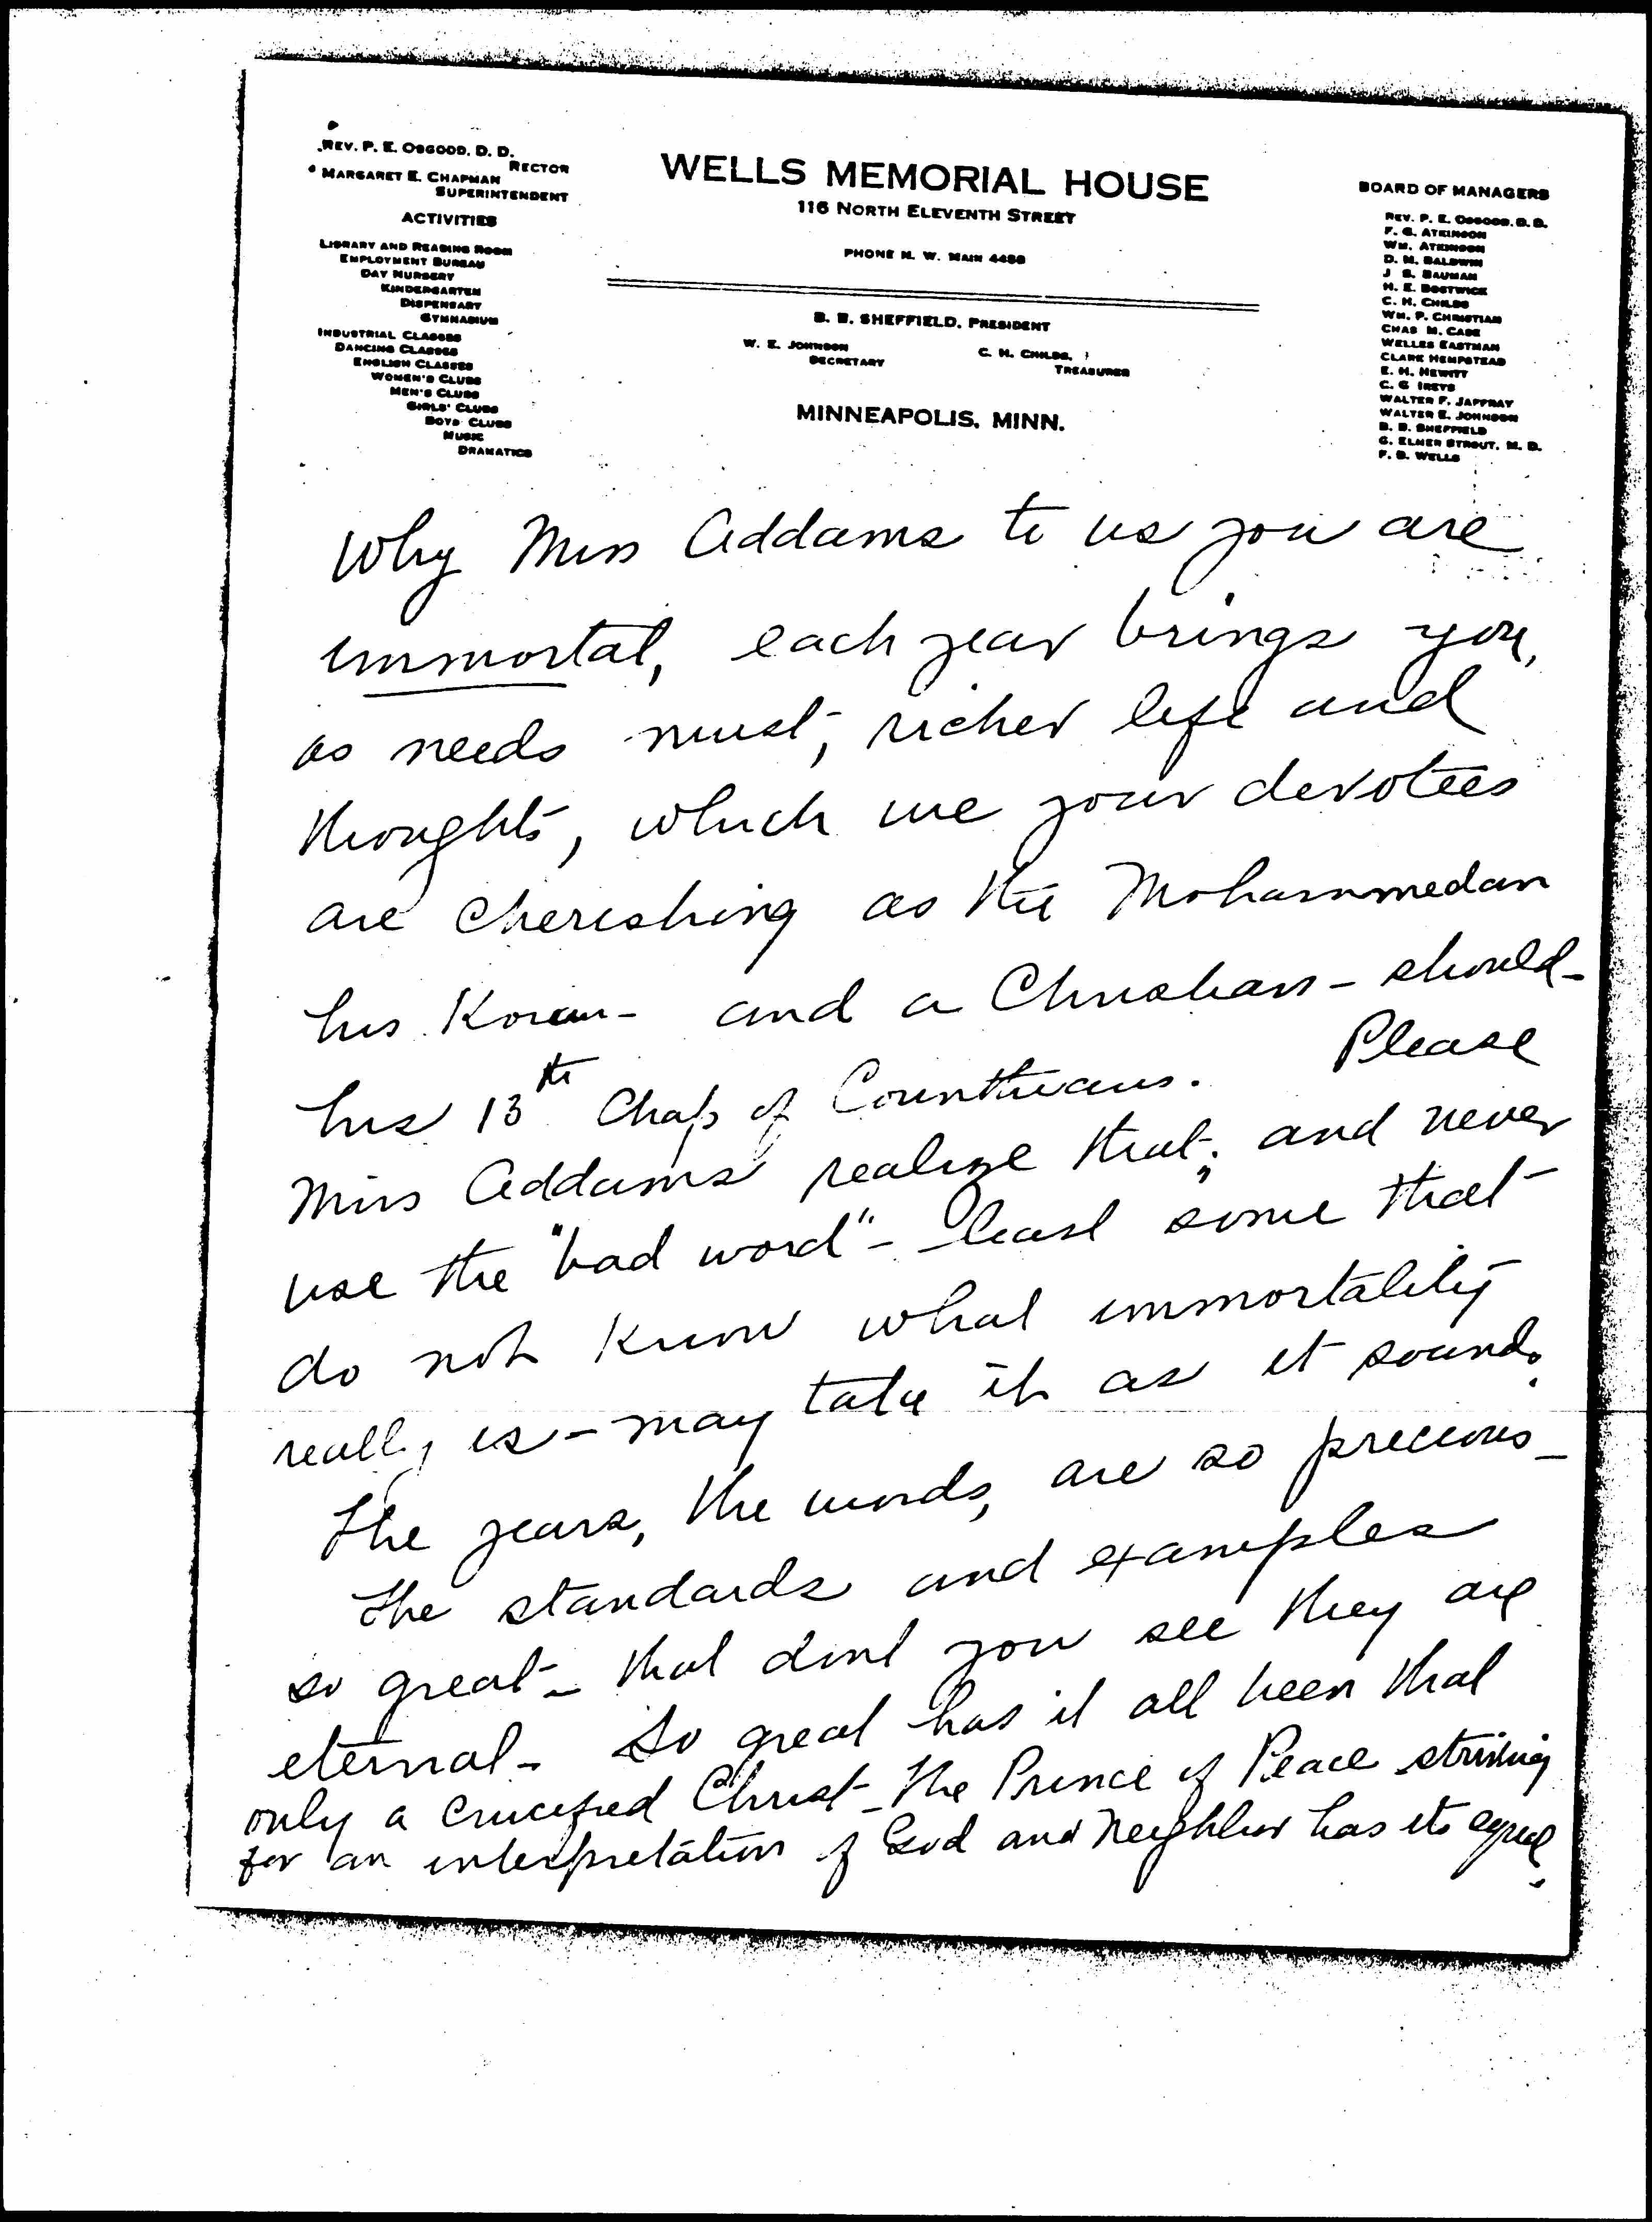 REV. P. E. OSGOOD, D. D.
RECTOR
MARGARET E. CHAPMAN
SUPERINTENDENT
ACTIVITIES
LIBRARY AND READING ROOM
EMPLOYMENT BUREAU
DAY NURSERY
KINDERGARTEN
DISPENSARY
GYMNASIUM
INDUSTRIAL CLASSES
DANCING CLASSES
ENGLISH CLASSES
WOMEN'S CLUBS
MEN'S CLUBS
GIRLS' CLUBS
BOYS' CLUBS
MUSIC
DRAMATICS
WELLS MEMORIAL HOUSE
116 NORTH ELEVENTH STREET
PHONE N. W. MAIN 4488
B. B. SHEFFIELD, PRESIDENT
W. E. JOHNSON
SECRETARY
C. H. CHILDS,
TREASURER
MINNEAPOLIS, MINN.
BOARD OF MANAGERS
REV. P. E. OSGOOD, D. D.
F. G. ATKINSON
WM. ATKINSON
D. M. BALDWIN
J. S. BAUMAN
H. E. BOSTWICK
C. H. CHILDS
WM. P. CHRISTIAN
CHAS M. CASE
WELLES EASTMAN
CLARK HEMPSTEAD
E. H. HEWITT
C. G IREYS
WALTER F. JAFFRAY
WALTER E. JOHNSON
B. B. SHEFFIELD
G. ELMER STROUT, M. D.
F. B. WELLS
Why Miss Addams to us you are
immortal, each year brings you,
as needs must, richer life and
thoughts, which we your devotees
are cherishing as the Mohammedan
his Koran - and a Christian - should -
his 13th Chap of Corinthians. Please
Miss Addams realize that, and never
use the "bad word" - least some that
do not know what immortality
really is - may take it as it sounds.
The years, the words, are so precious -
the standards and examples
so great - that dont you see they are
eternal - So great has it all been that
only a crucified Christ - the Prince of Peace striving
for an interpretation of God and neighbor has its equal.